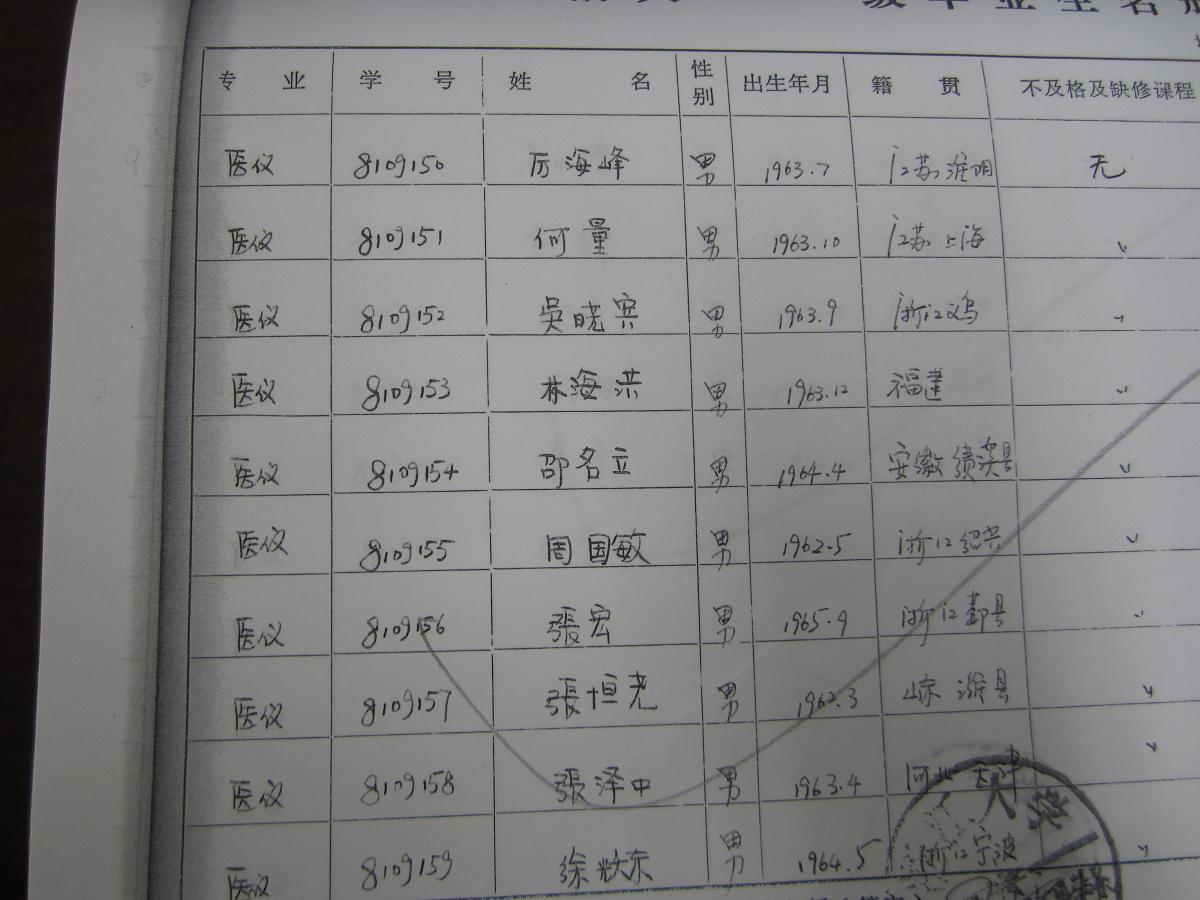 级毕业生名
专业 学号 姓名 性别 出生年月 籍贯 不及格及缺修课程
医仪 8109150 厉海峰 男 1963.7 江苏淮阴 无
医仪 8109151 何量 男 1963.10 江苏上海 〃
医仪 8109152 吳晓 男 1963.9 浙江义乌 〃
医仪 8109153 林海洪 男 1963.12 福建 〃
医仪 8109154 邵名立 男 1964.4 安徽绩溪县 〃
医仪 8109155 周国敏 男 1962.5 浙江绍兴 〃
医仪 8109156 張宏 男 1965.9 浙江鄞县 〃
医仪 8109157 張恒尧 男 1962.3 山东潍县 〃
医仪 8109158 張泽中 男 1963.4 河北天津 〃
医仪 8109159 徐东 男 1964.5 浙江宁波 〃